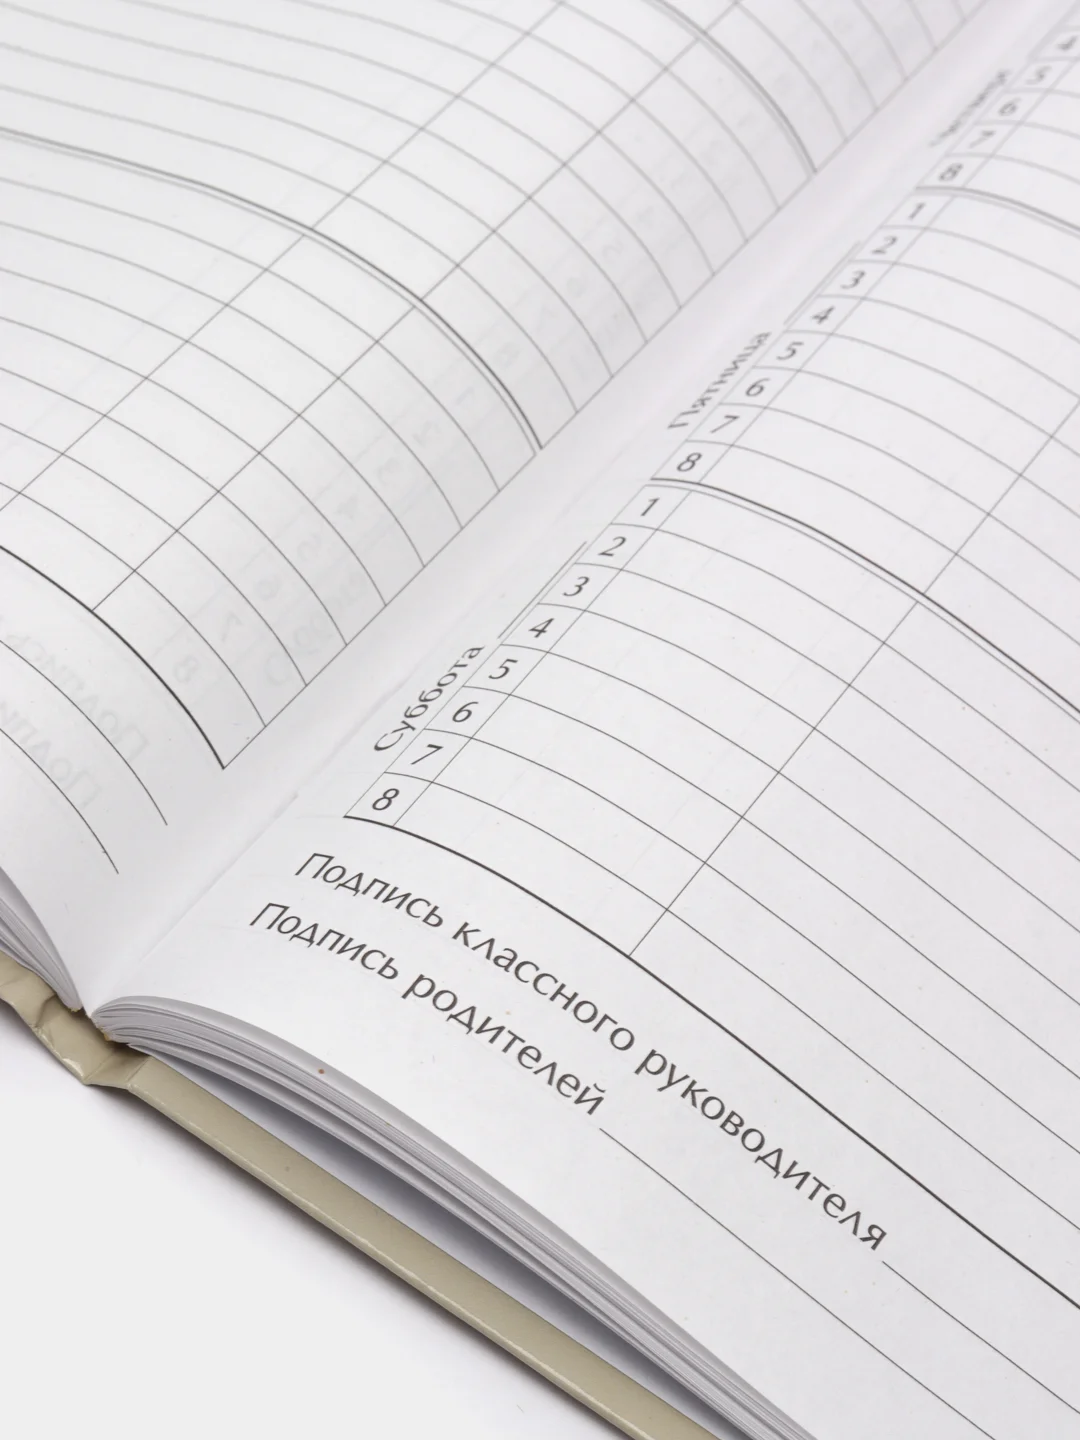 4
5
6
7
8
1
2
3
4
5
6
7
8
Пятница
1
2
3
4
5
6
7
8
Суббота
Подпись классного руководителя
Подпись родителей